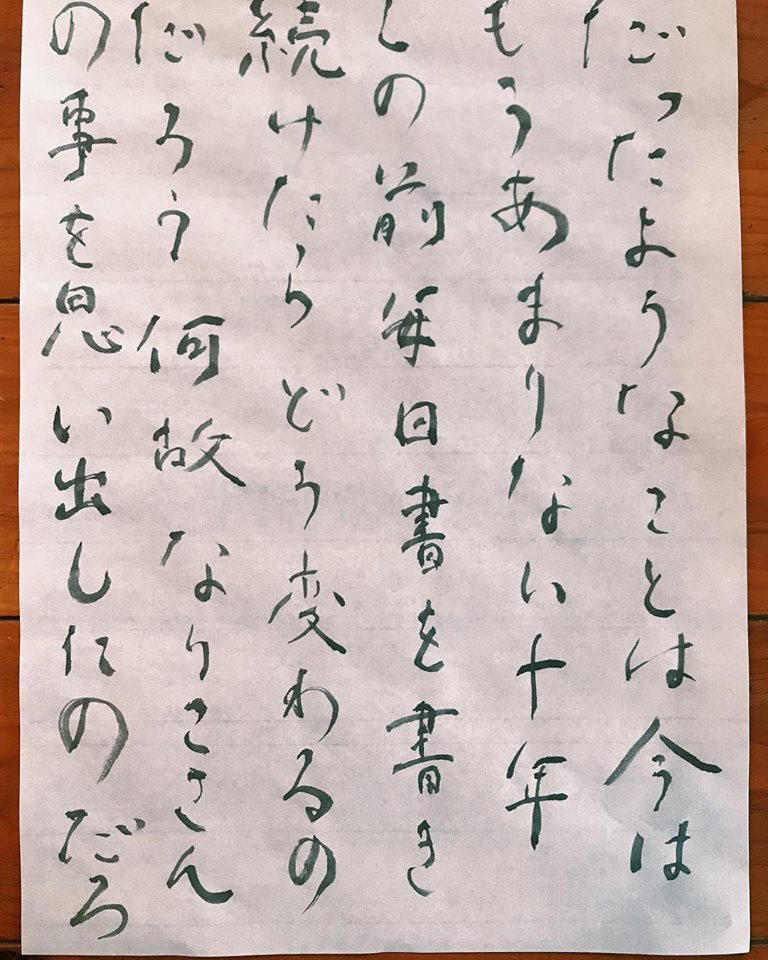 だったようなことは今は
もうあまりない十年
の前毎日書を書き
続けたらどう変わるの
だろう 何故なりこさん
の事を思い出したのだろ